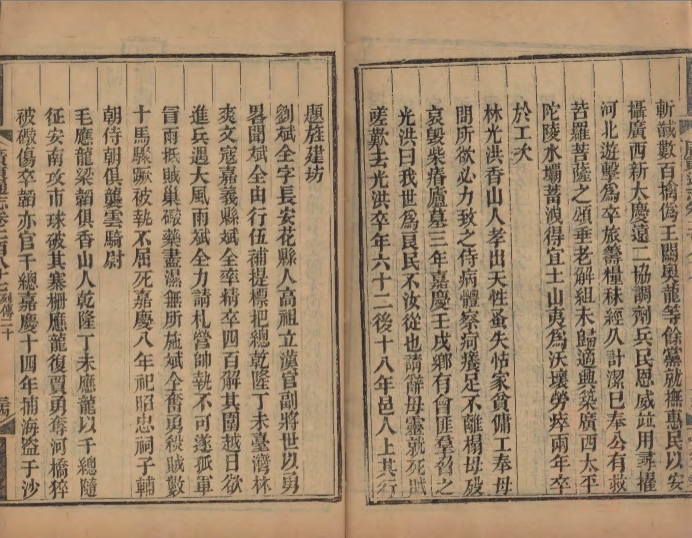 斬馘數百擒偽王闗奥龍等餘黨就撫惠民以安
攝廣西新太慶遠二協調劑兵民恩威並用尋擢
河北遊擊為卒旅籌糧秣經久計潔已奉公有救
苦羅菩薩之頌垂老解組未歸適興築廣西太平
陀陵水壩蓄洩得宜土山夷為沃壤勞瘁兩年卒
於工次
林光洪香山人孝出天性蚤失怙家貧傭工奉母
問所欲必力致之侍病體察疴癢足不離榻母歿
哀毀柴瘠廬墓三年嘉慶壬戌鄉有會匪羣脅之
光洪曰我世為良民不汝從也請辭母靈就死賊
嗟歎去光洪卒年六十二後十八年邑人上其行
題旌建坊
劉斌全字長安花縣人高祖立漢官副將世以勇
畧聞斌全由行伍補提標把總乾隆丁未臺灣林
爽文寇嘉義縣斌全率精卒四百解其圍越日欲
進兵遇大風雨斌全力請札營帥執不可遂孤軍
冒雨抵賊巢礮藥盡濕無所施斌全奮勇殺賊數
十馬蹶被執不屈死嘉慶八年祀昭忠祠子輔
朝侍朝俱襲雲騎尉
毛應龍梁韜俱香山人乾隆丁未應龍以千總隨
征安南攻市球破其寨柵應龍復賈勇奪河橋猝
被礮傷卒韜亦官千總嘉慶十四年捕海盜于沙
廣東通志卷二百八十七 列傳二十